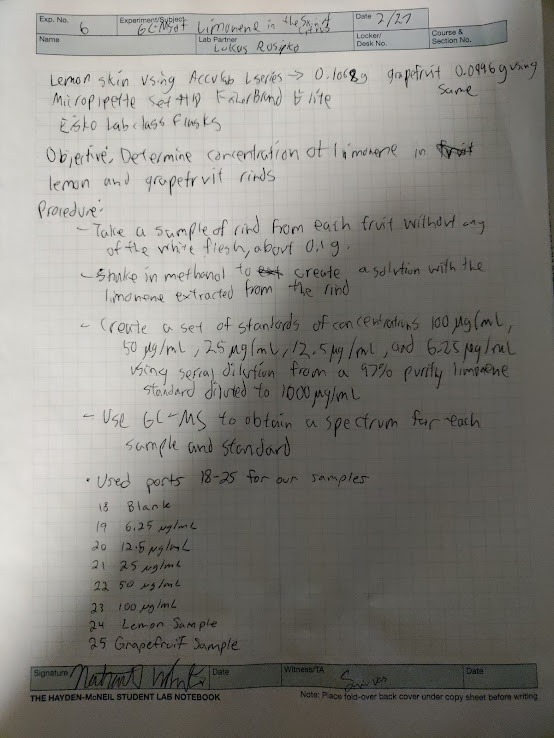 Exp. No. 6 Experiment/Subject GC-MS of Limonene in the Skin of Citrus Date 2/27
Name Lab Partner Lukus Rosipko Locker/Desk No. Course & Section No.
Lemon skin using Accusb L series → 0.1068g grapefruit 0.0996g using same
Micropipette Set FisherBrand Elite
Eisko Labclass Flasks
Objective: Determine concentration of limonene in
lemon and grapefruit rinds
Procedure:
- Take a sample of rind from each fruit without any
of the white flesh, about 0.1 g.
- Shake in methanol to create a solution with the
limonene extracted from the rind
- Create a set of standards of concentrations 100 µg/mL,
50 µg/mL, 25 µg/mL, 12.5 µg/mL, and 6.25 µg/mL
using serial dilution from a 97% purity limonene
standard diluted to 1000 µg/mL
- Use GC-MS to obtain a spectrum for each
sample and standard
• Used ports 18-25 for our samples
18 Blank
19 6.25 µg/mL
20 12.5 µg/mL
21 25 µg/mL
22 50 µg/mL
23 100 µg/mL
24 Lemon Sample
25 Grapefruit Sample
Signature Date Witness/TA Date
THE HAYDEN-McNEIL STUDENT LAB NOTEBOOK Note: Place fold-over back cover under copy sheet before writing